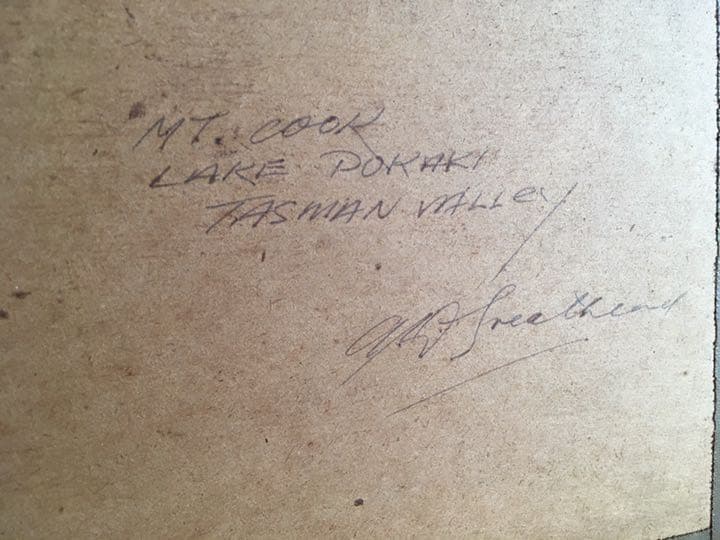 MT. COOK
LAKE POKAKI
TASMAN VALLEY
Greathead